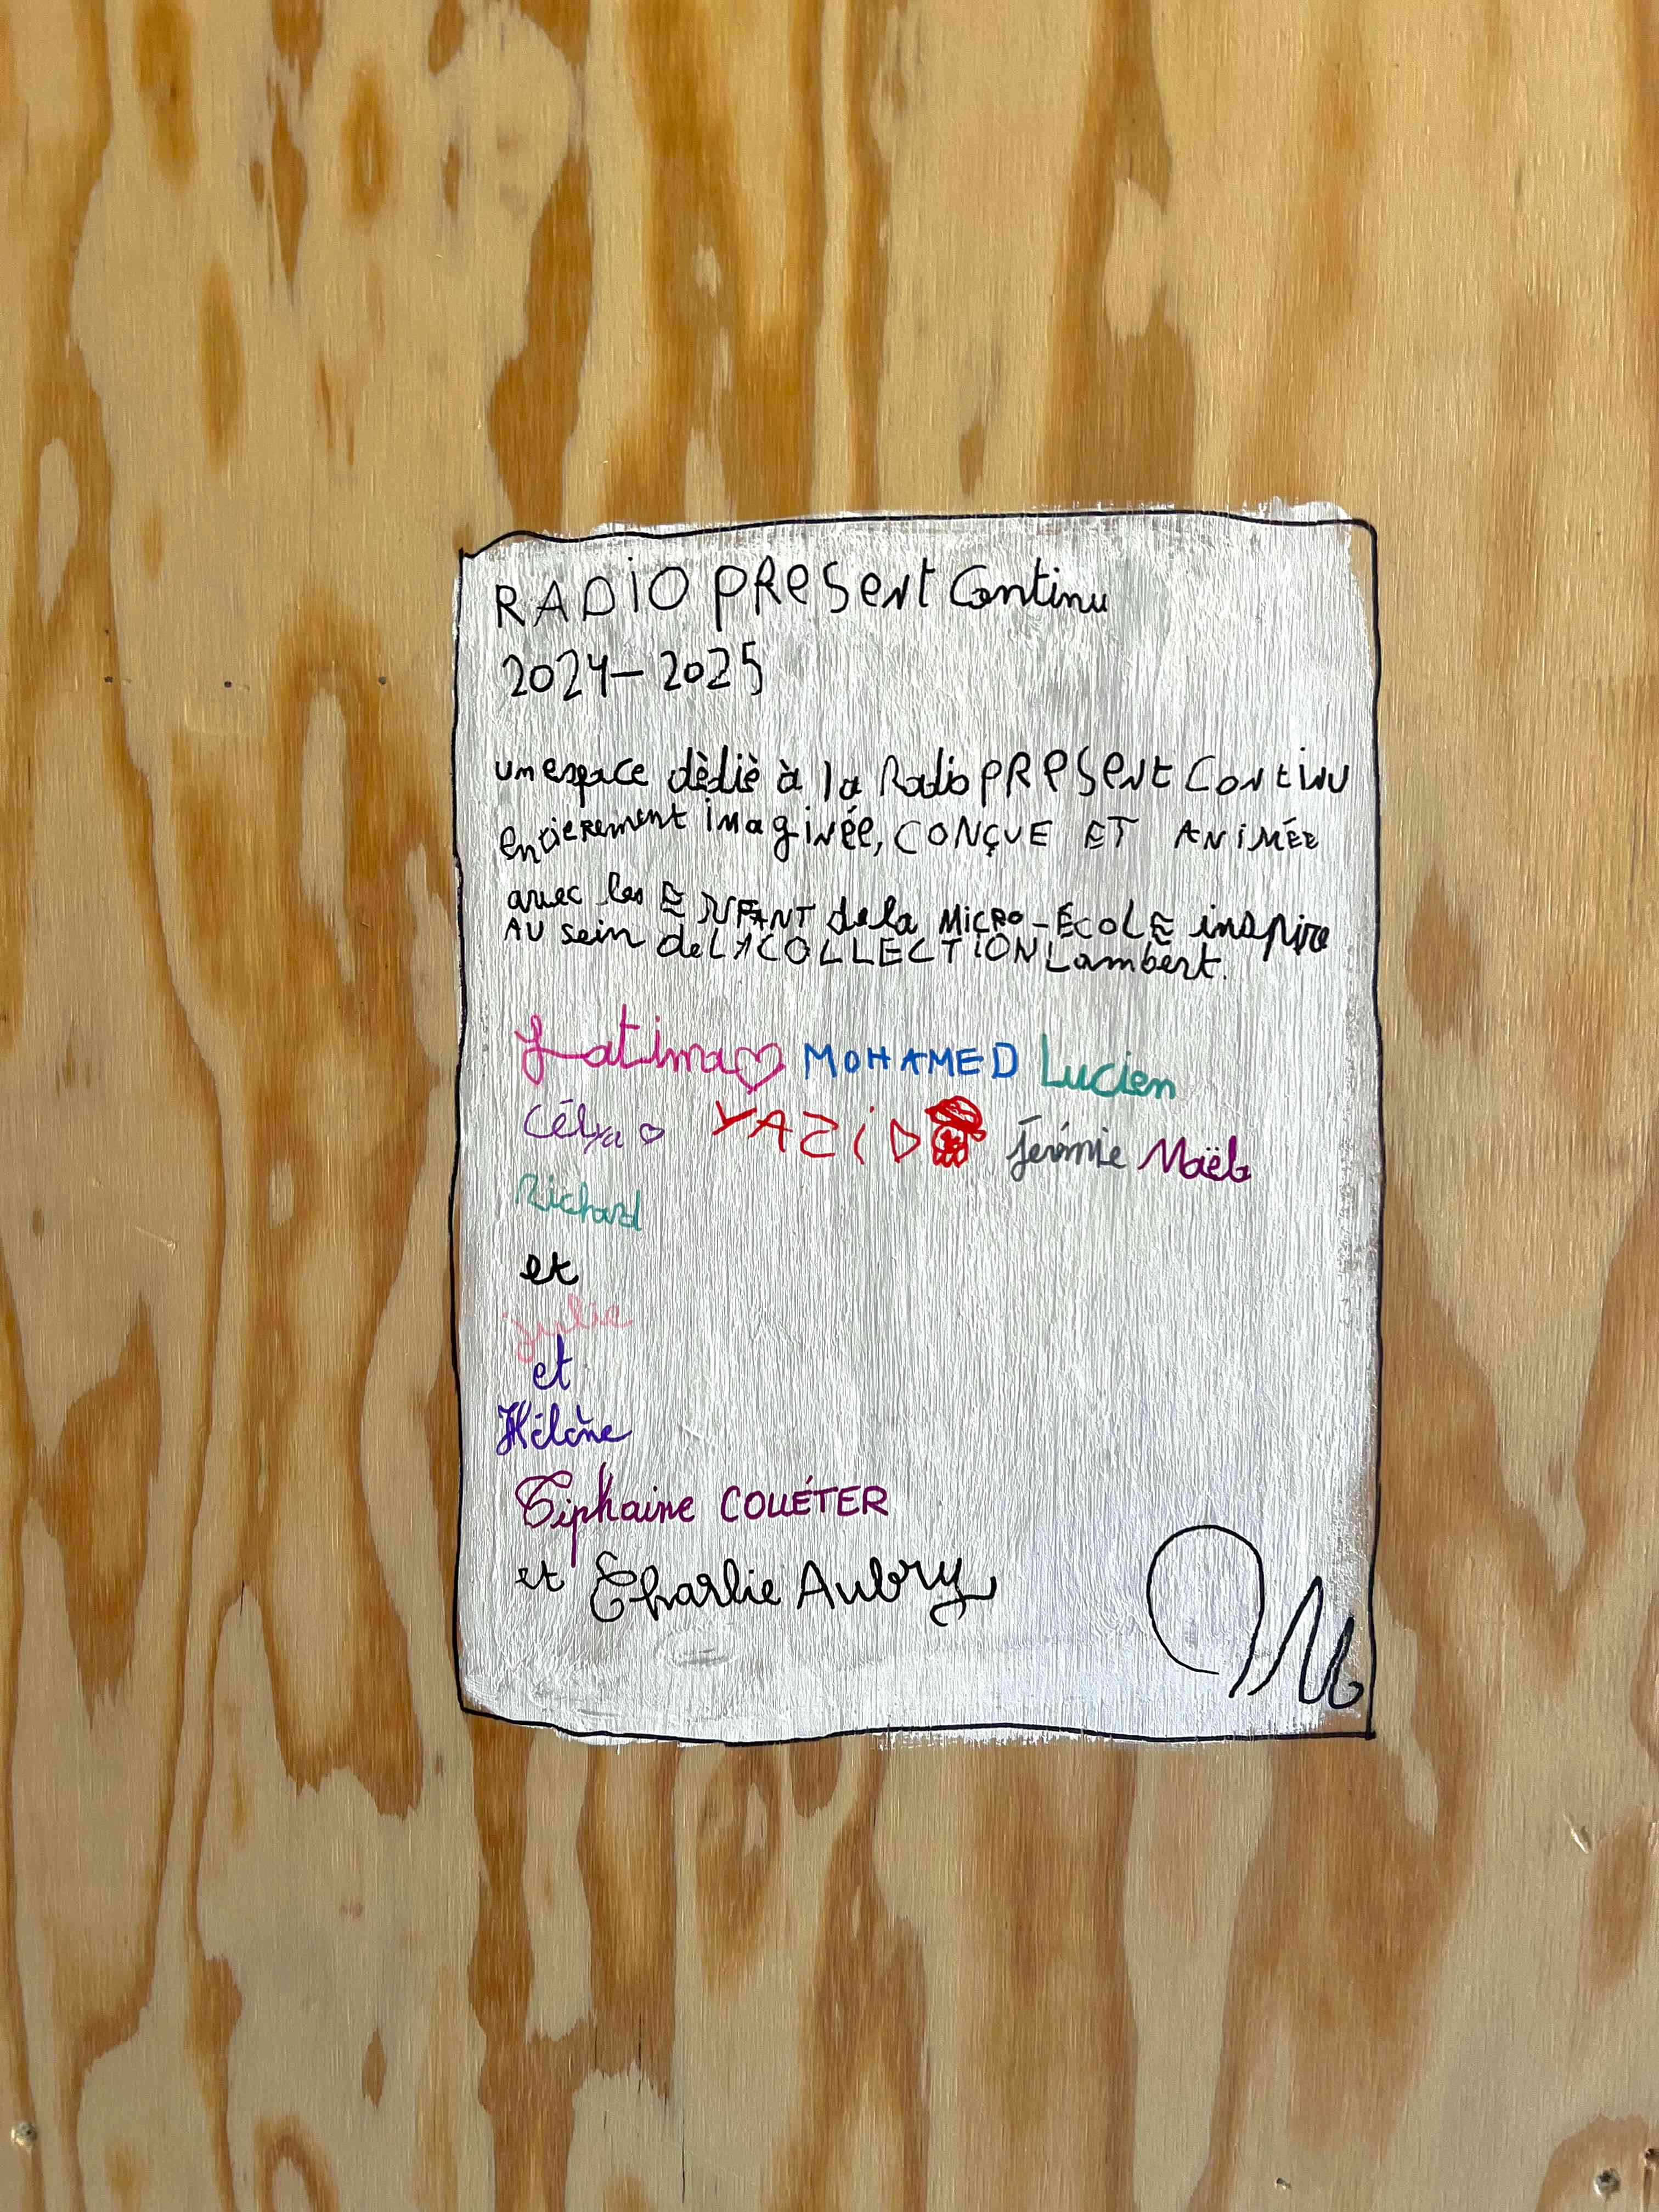 RADiO PReSent Continu
2024-2025
un espace dèdiè à la Radio PRESent Continu
entierement imaginée, CONÇUE ET ANiMÉE
avec les ENFANT de la MiCRO-ÉCOLE inspire
AU sein de LA COLLECTiON Lambert.
Fatima♡ MOHAMED Lucien
Célya♡ YAZiD Jérémie Maëla
Richard
et
julie
et
Hélène
Tiphaine COUÉTER
et Charlie Aubry